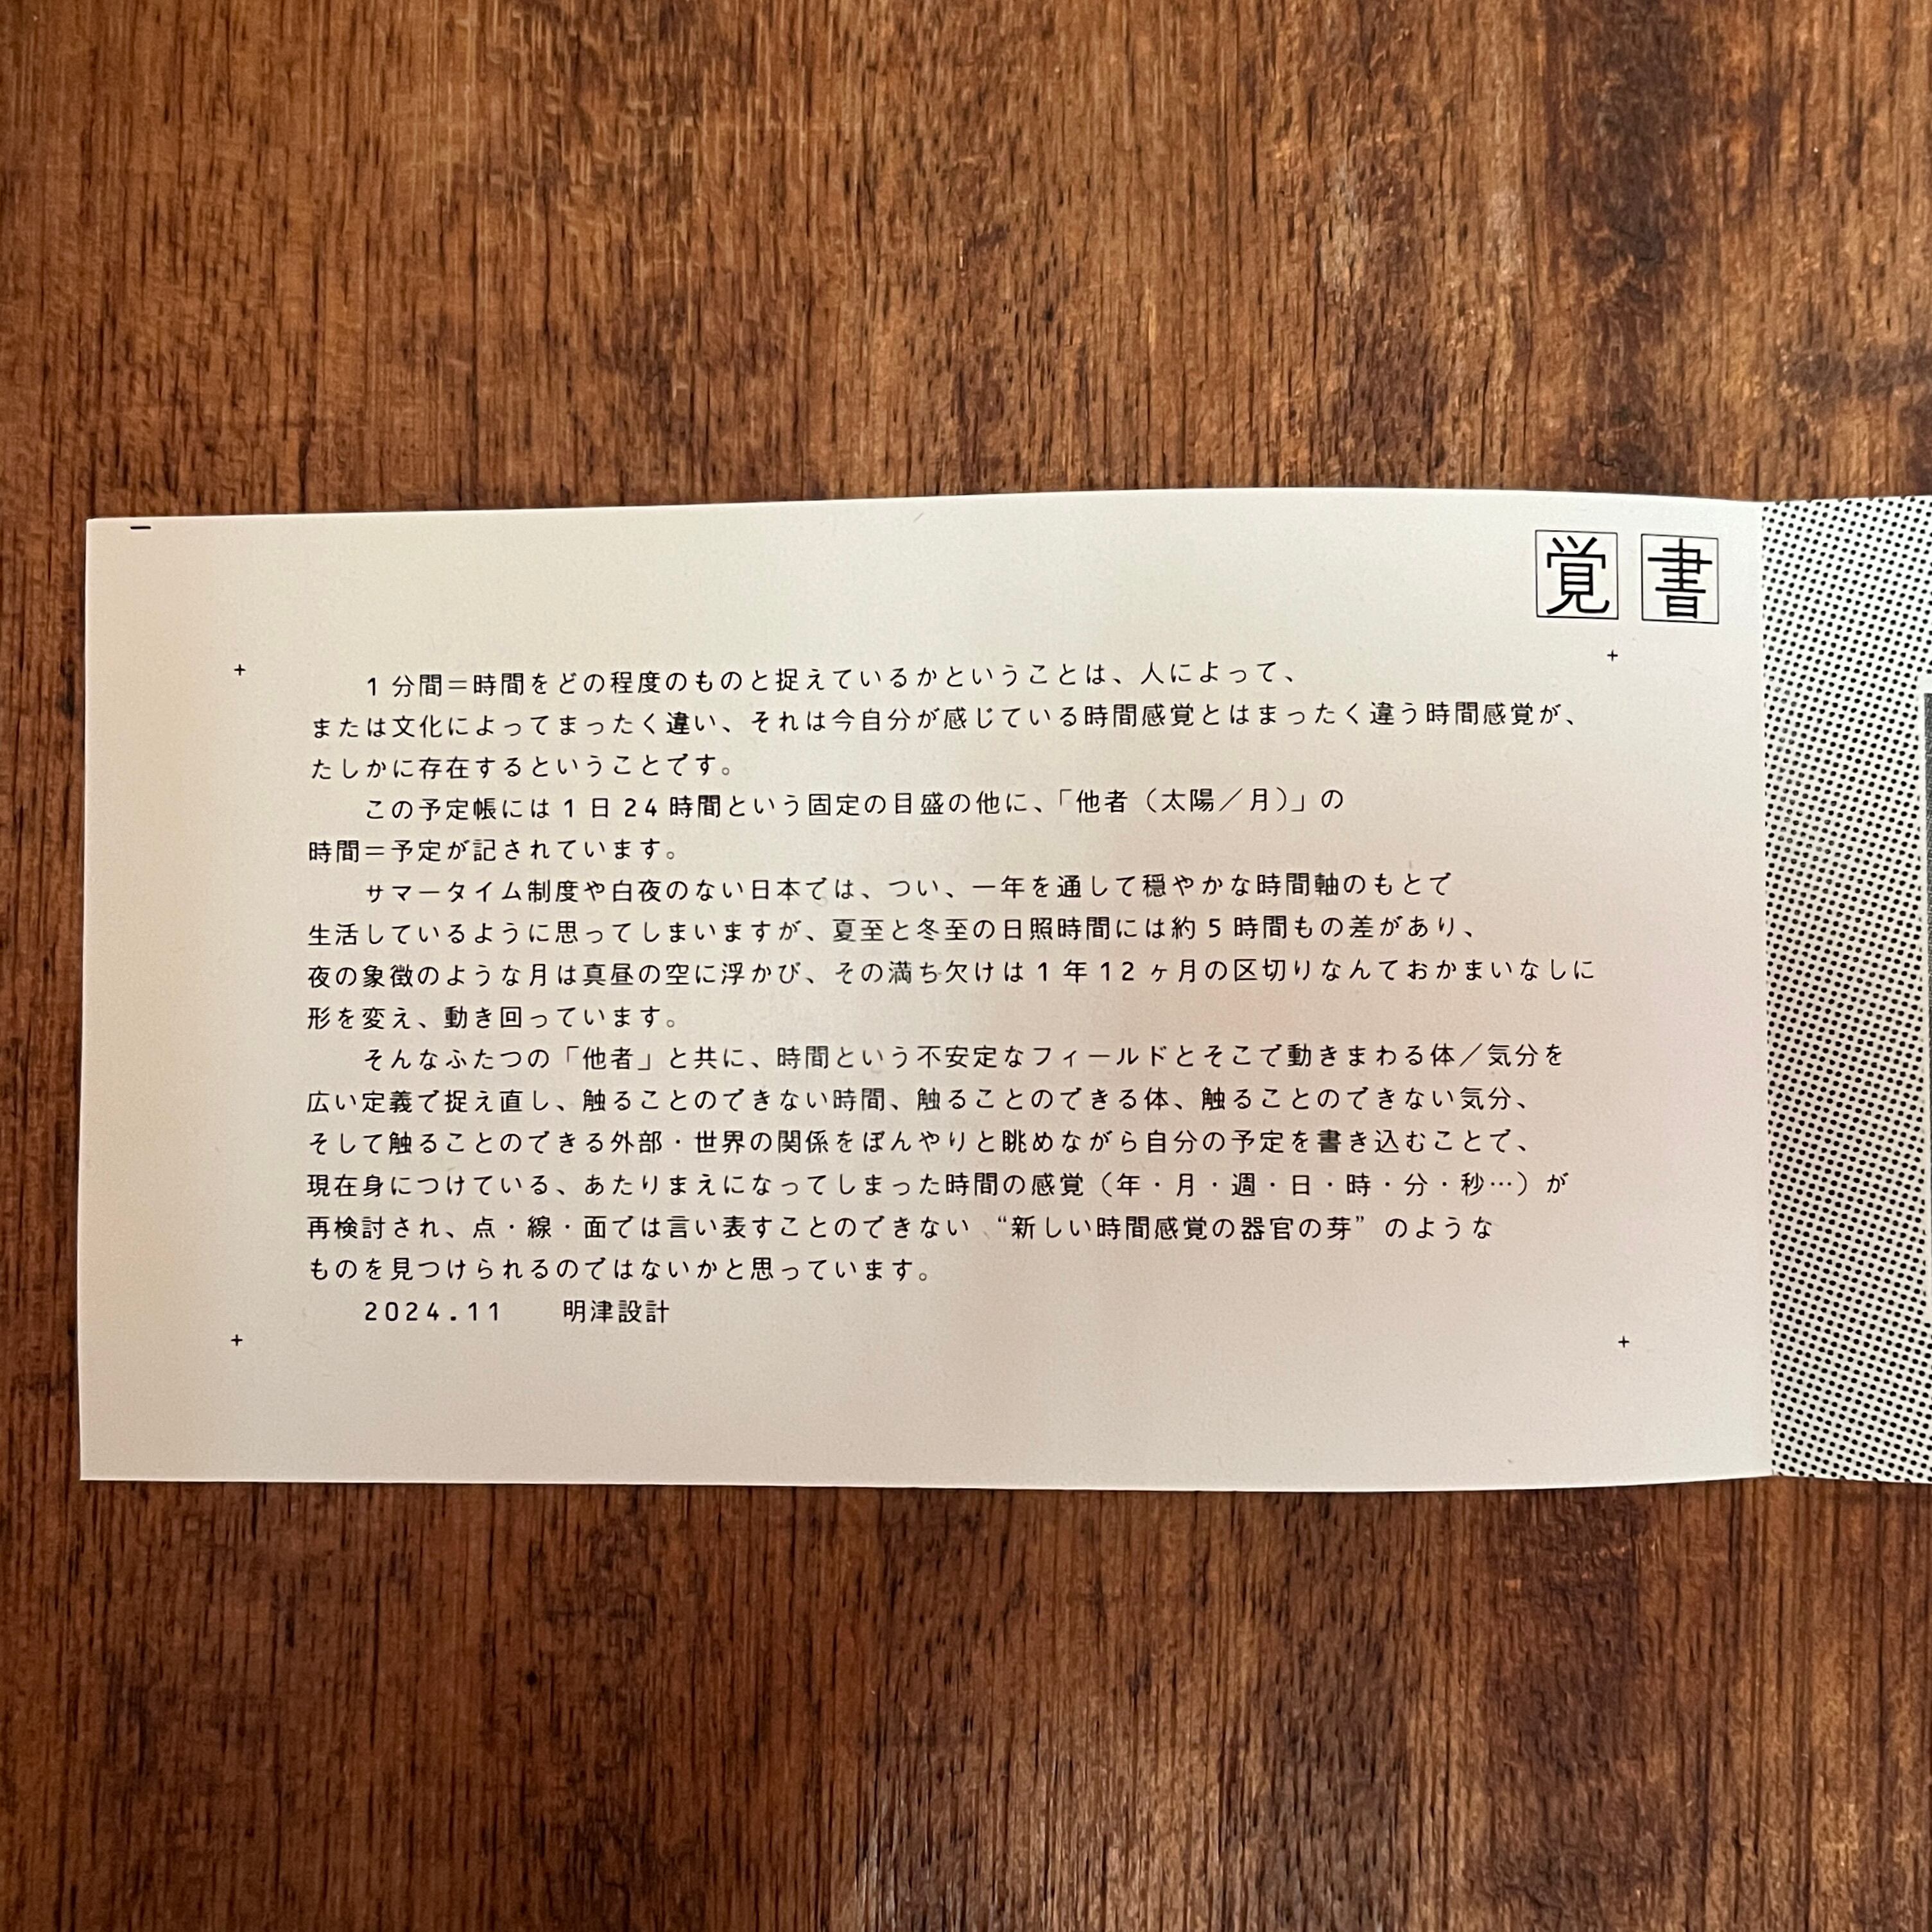 覚書
1分間＝時間をどの程度のものと捉えているかということは、人によって、
または文化によってまったく違い、それは今自分が感じている時間感覚とはまったく違う時間感覚が、
たしかに存在するということです。
この予定帳には1日24時間という固定の目盛の他に、「他者（太陽／月）」の
時間＝予定が記されています。
サマータイム制度や白夜のない日本では、つい、一年を通して穏やかな時間軸のもとで
生活しているように思ってしまいますが、夏至と冬至の日照時間には約5時間もの差があり、
夜の象徴のような月は真昼の空に浮かび、その満ち欠けは1年12ヶ月の区切りなんておかまいなしに
形を変え、動き回っています。
そんなふたつの「他者」と共に、時間という不安定なフィールドとそこで動きまわる体／気分を
広い定義で捉え直し、触ることのできない時間、触ることのできる体、触ることのできない気分、
そして触ることのできる外部・世界の関係をぼんやりと眺めながら自分の予定を書き込むことで、
現在身につけている、あたりまえになってしまった時間の感覚（年・月・週・日・時・分・秒…）が
再検討され、点・線・面では言い表すことのできない“新しい時間感覚の器官の芽”のような
ものを見つけられるのではないかと思っています。
2024.11　明津設計